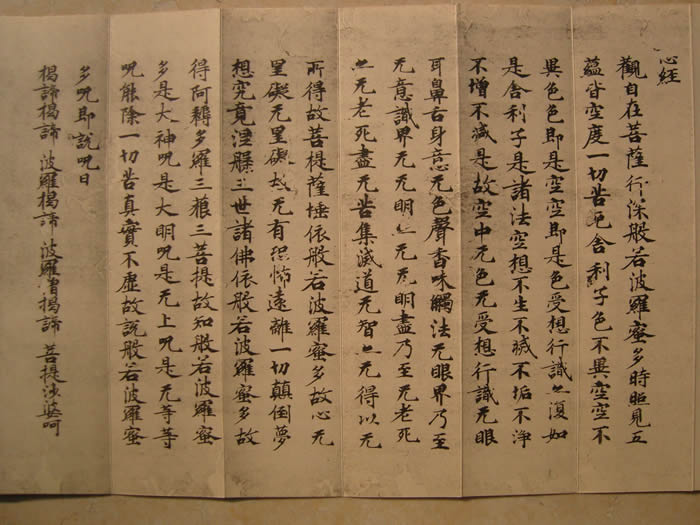 心經
觀自在菩薩行深般若波羅蜜多時照見五
蘊皆空度一切苦厄舍利子色不異空空不
異色色即是空空即是色受想行識亦復如
是舍利子是諸法空想不生不滅不垢不淨
不增不減是故空中无色无受想行識无眼
耳鼻舌身意无色聲香味觸法无眼界乃至
无意識界无无明亦无无明盡乃至无老死
亦无老死盡无苦集滅道无智亦无得以无
所得故菩提薩埵依般若波羅蜜多故心无
罣礙无罣礙故无有恐怖遠離一切顛倒夢
想究竟涅槃三世諸佛依般若波羅蜜多故
得阿耨多羅三藐三菩提故知般若波羅蜜
多是大神呪是大明呪是无上呪是无等等
呪能除一切苦真實不虛故說般若波羅蜜
多呪即說呪曰
揭諦揭諦 波羅揭諦 波羅僧揭諦 菩提沙婆呵